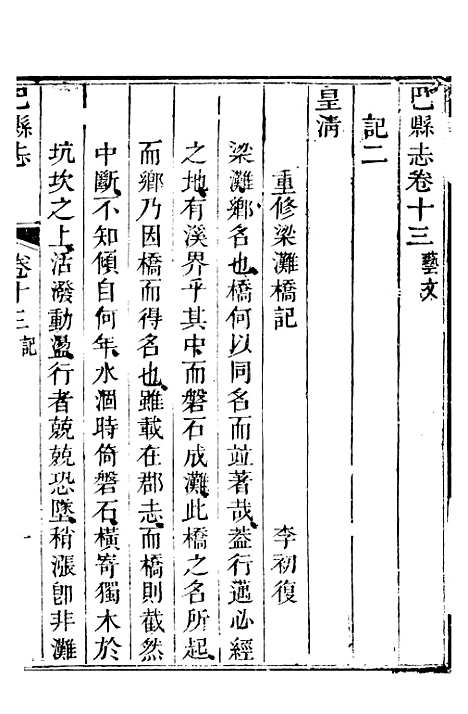 巴縣志卷十三 藝文
記二
皇清
重修梁灘橋記 李初復
梁灘鄉名也橋何以同名而並著哉蓋行邁必經
之地有溪界乎其中而磐石成灘此橋之名所起
而鄉乃因橋而得名也雖載在郡志而橋則截然
中斷不知傾自何年水涸時倚磐石橫嵜獨木於
坑坎之上活潑動盪行者兢兢恐墜稍漲卽非灘
巴縣志 卷十三 記 一